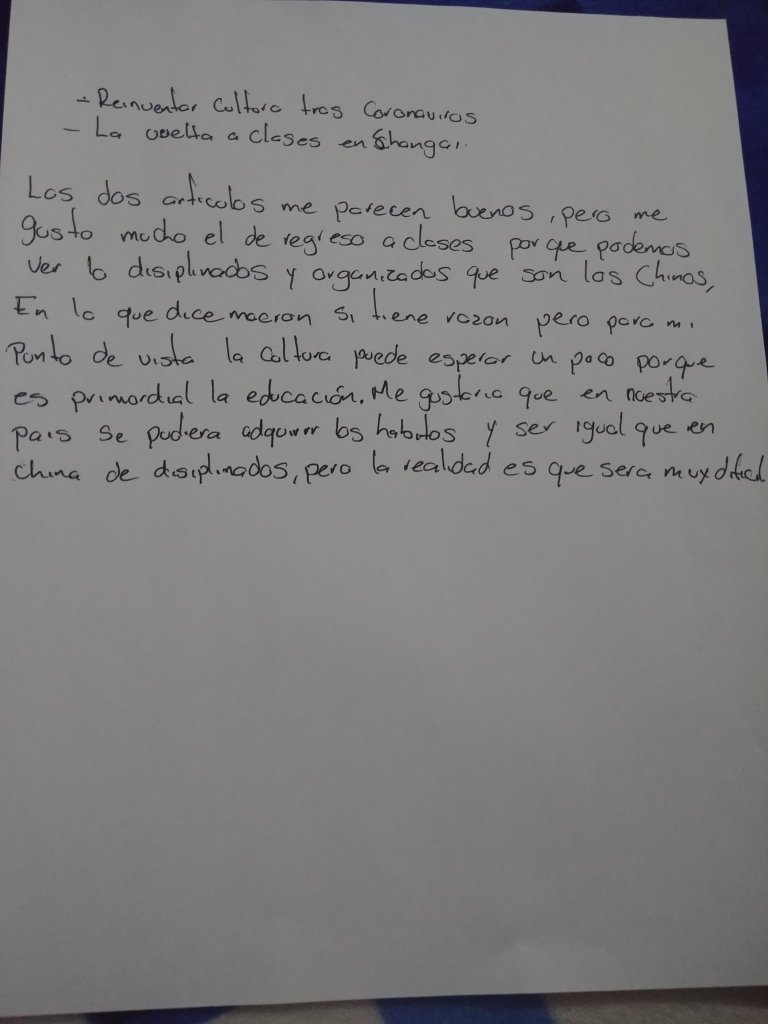 - Reinventar Cultura tras Coronavirus
- La vuelta a clases en Shangai.
Los dos articulos me parecen buenos, pero me
gusto mucho el de regreso a clases porque podemos
ver lo disiplinados y organizados que son los Chinos,
En lo que dice macron si tiene razon pero para mi
Punto de vista la Cultura puede esperar un poco porque
es primordial la educación. Me gustaria que en nuestra
pais se pudiera adquirir los habitos y ser igual que en
China de disiplinados, pero la realidad es que sera muy dificil